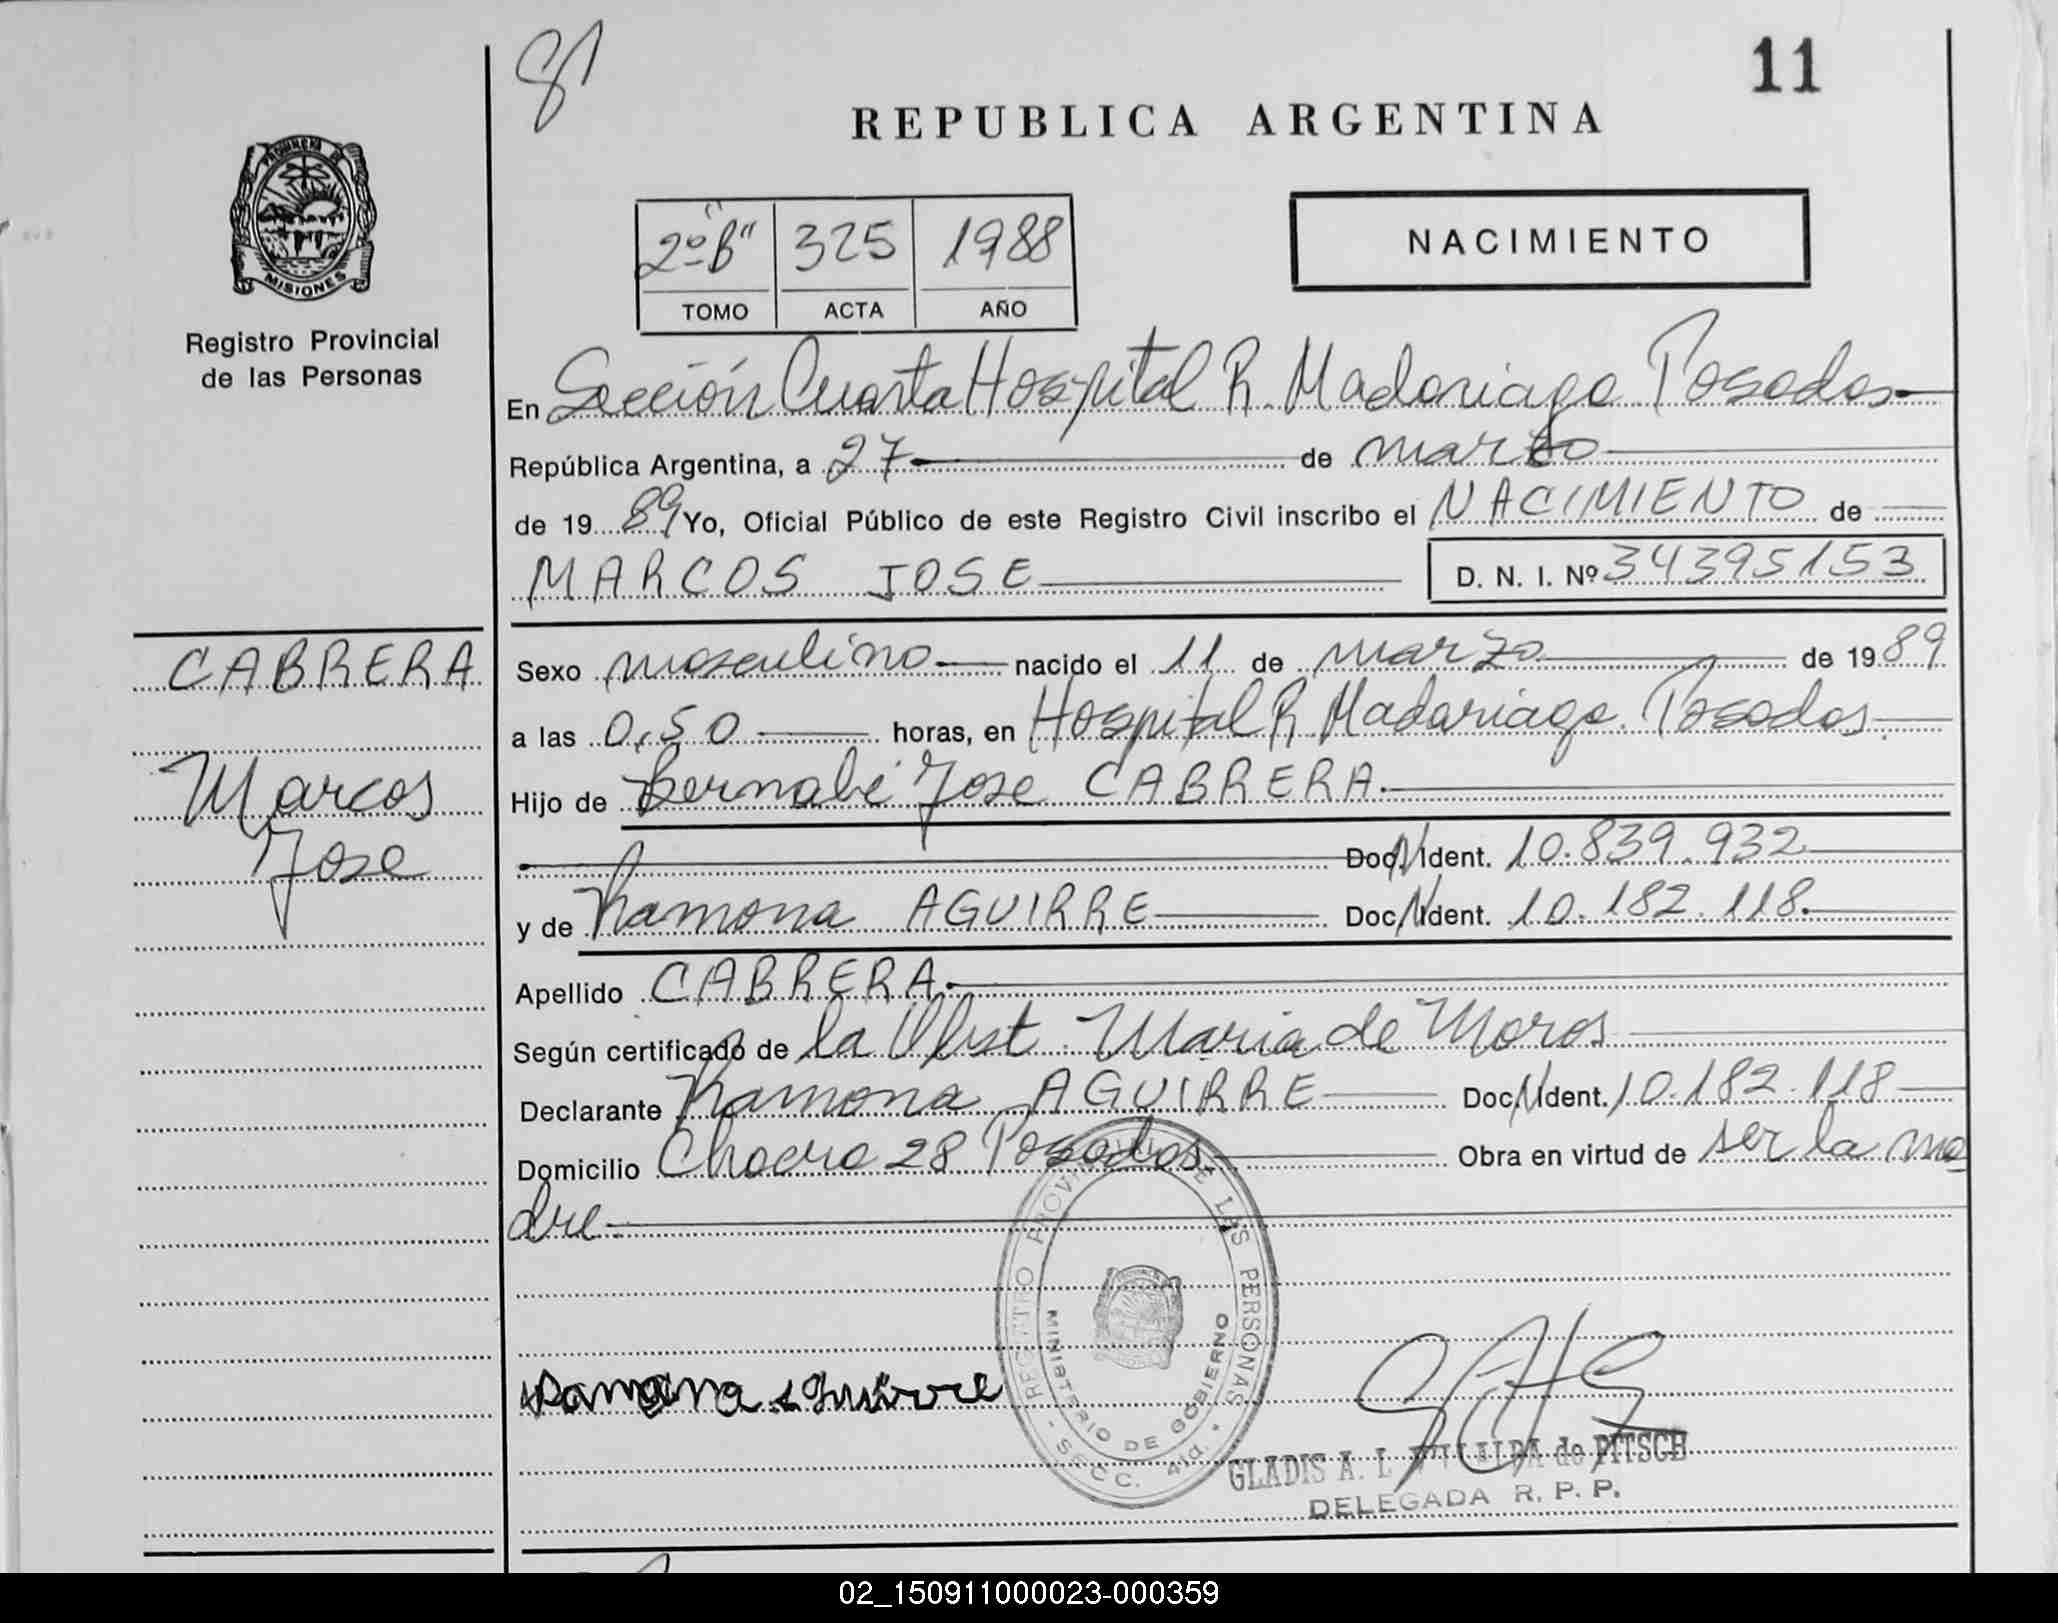 11
REPUBLICA ARGENTINA
PROVINCIA DE
MISIONES
Registro Provincial
de las Personas
2º "B" 325 1988
TOMO ACTA AÑO
NACIMIENTO
En Sección Cuarta Hospital R. Madariaga Posadas
República Argentina, a 27 de marzo
de 1989 Yo, Oficial Público de este Registro Civil inscribo el NACIMIENTO de
MARCOS JOSE D. N. I. Nº 34395153
CABRERA
Marcos
Jose
Sexo masculino nacido el 11 de marzo de 1989
a las 0,50 horas, en Hospital R. Madariaga. Posadas.
Hijo de Bernabé Jose CABRERA.
Doc. N Ident. 10.839.932
y de Ramona AGUIRRE Doc. N Ident. 10.182.118.
Apellido CABRERA.
Según certificado de la Obst. Maria de Moros
Declarante Ramona AGUIRRE Doc. N Ident. 10.182.118
Domicilio Chacra 28 Posadas Obra en virtud de ser la ma
dre
REGISTRO PROVINCIAL DE LAS PERSONAS
MINISTERIO DE GOBIERNO
- SECC. 4ta. -
Ramona Aguirre
GLADIS A. L. VILLALBA de PITSCH
DELEGADA R. P. P.
02_150911000023-000359